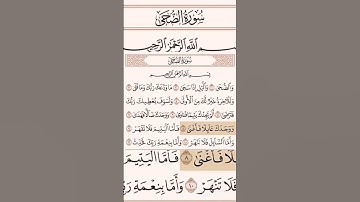 سُورَةُ الضُّحَىٰ
ـمِ اللَّهِ الرَّحْمَٰنِ الرَّحِي
سُورَةُ الضُّحَىٰ
بِسْمِ اللَّهِ الرَّحْمَٰنِ الرَّحِيمِ
وَالضُّحَىٰ ١ وَاللَّيْلِ إِذَا سَجَىٰ ٢ مَا وَدَّعَكَ رَبُّكَ وَمَا قَلَىٰ ٣
وَلَلْآخِرَةُ خَيْرٌ لَّكَ مِنَ الْأُولَىٰ ٤ وَلَسَوْفَ يُعْطِيكَ رَبُّكَ
فَتَرْضَىٰ ٥ أَلَمْ يَجِدْكَ يَتِيمًا فَآوَىٰ ٦ وَوَجَدَكَ ضَالًّا فَهَدَىٰ ٧
وَوَجَدَكَ عَائِلًا فَأَغْنَىٰ ٨ فَأَمَّا الْيَتِيمَ فَلَا تَقْهَرْ ٩
وَأَمَّا السَّائِلَ فَلَا تَنْهَرْ ١٠ وَأَمَّا بِنِعْمَةِ رَبِّكَ فَحَدِّثْ ١١
ـلًا فَأَغْنَىٰ ٨ فَأَمَّا الْيَتِيمَ
فَلَا تَنْهَرْ ١٠ وَأَمَّا بِنِعْمَةِ رَبِّـ